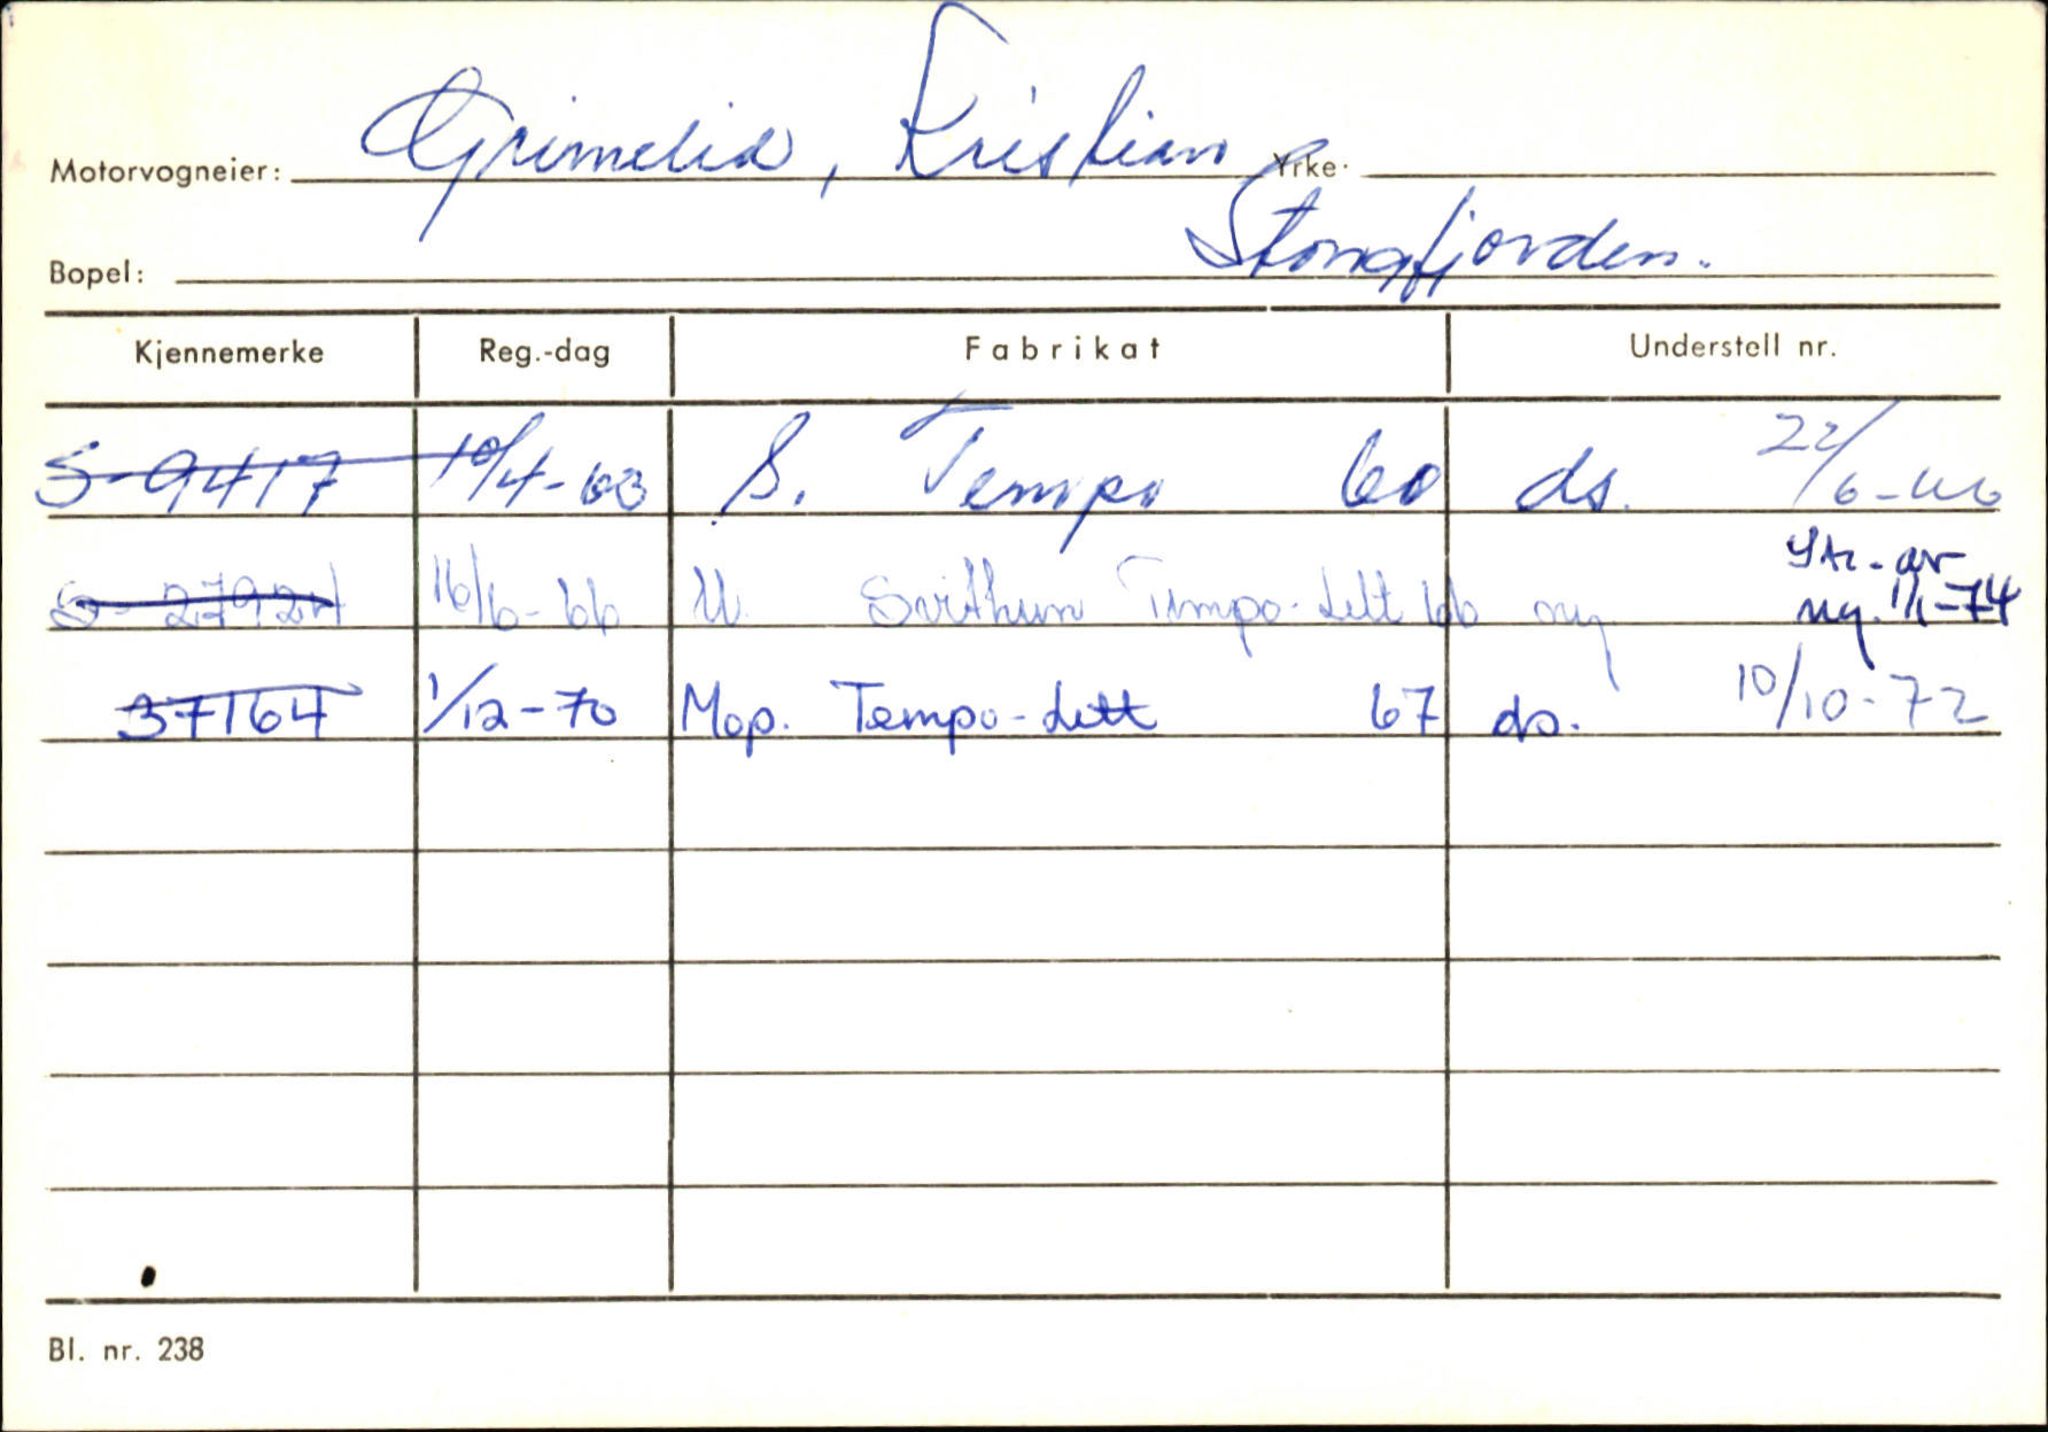 Motorvogneier: Grimelid, Kristian Yrke:
Bopel: Stongfjorden.
Kjennemerke Reg.-dag Fabrikat Understell nr.
S-9417 10/4-63 S. Tempo 60 ds. 22/6-66
S-27924 16/6-66 M. Svithun Tempo-Lett 66 ny Str. av
ny. 1/1-74
37164 1/12-70 Mop. Tempo-Lett 67 ds. 10/10-72
Bl. nr. 238